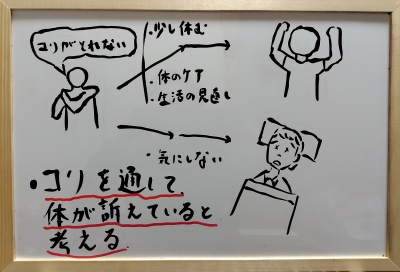 コリがとれない
・少し休む
・体のケア
・生活の見直し
・気にしない
・コリを通して
体が訴えていると
考える